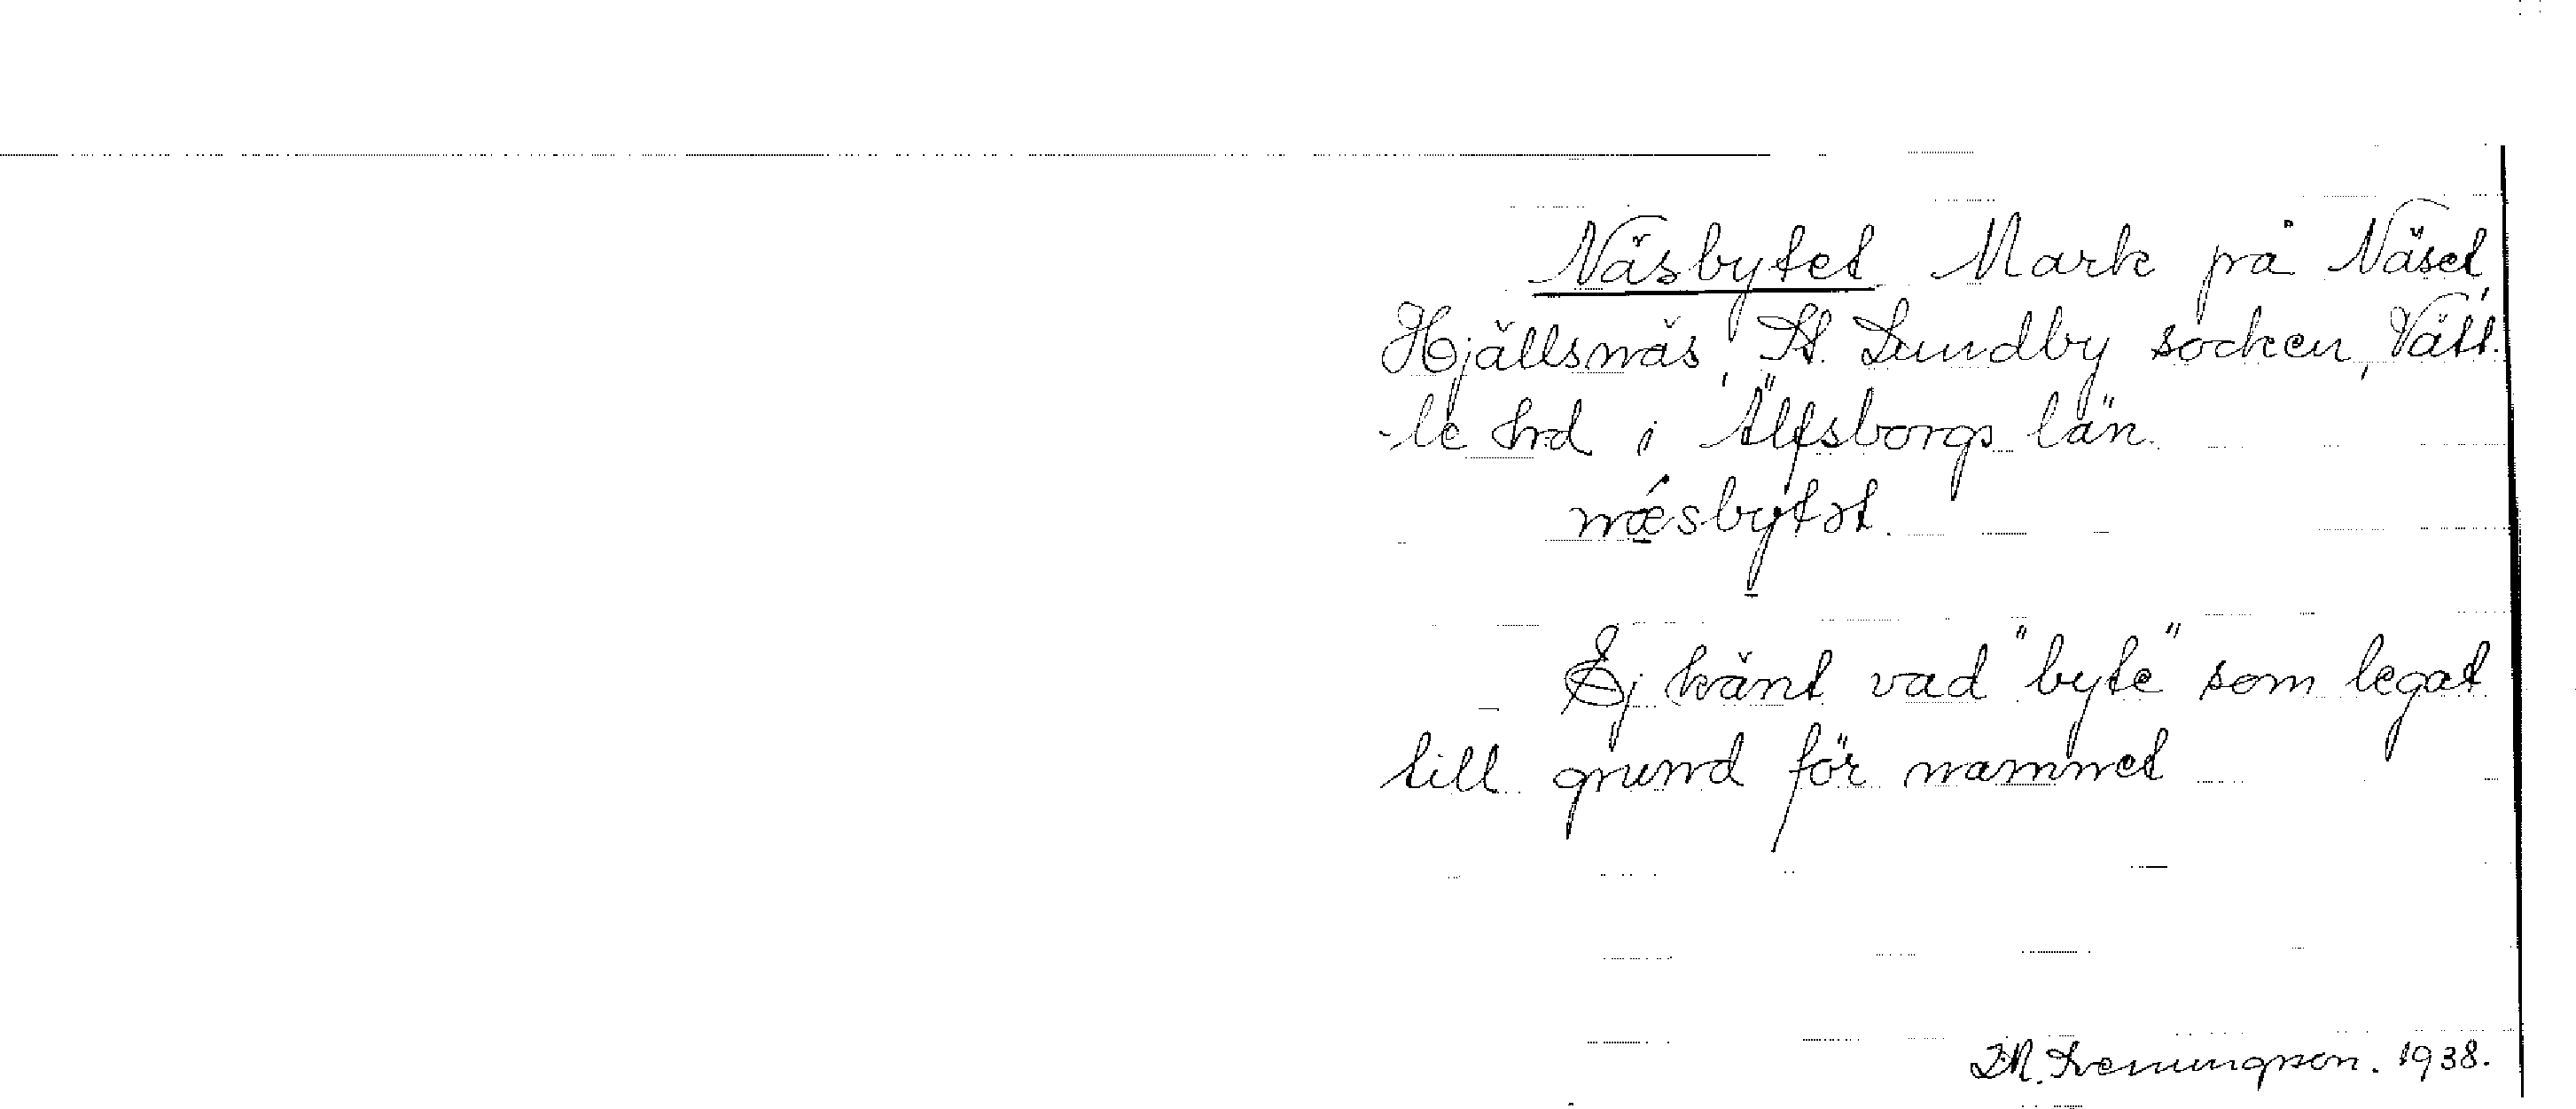 Näsbytet Mark på Näset,
Hjällsnäs, St. Lundby socken, Vätt-
-le hrd i Älfsborgs län.
næ´sby̱tət.
Ej känt vad "byte" som legat
till grund för namnet
1938.